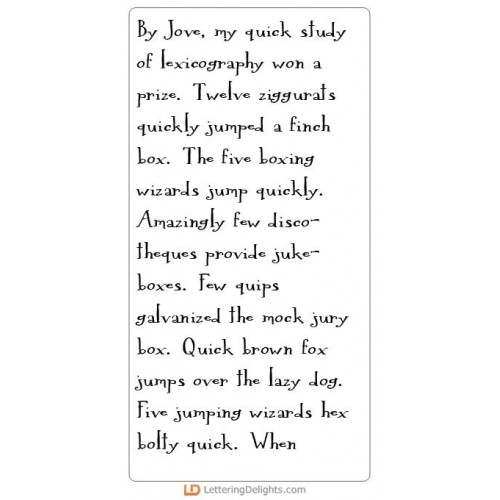 By Jove, my quick study
of lexicography won a
prize. Twelve ziggurats
quickly jumped a finch
box. The five boxing
wizards jump quickly.
Amazingly few disco-
theques provide juke-
boxes. Few quips
galvanized the mock jury
box. Quick brown fox
jumps over the lazy dog.
Five jumping wizards hex
bolty quick. When
LD LetteringDelights.com